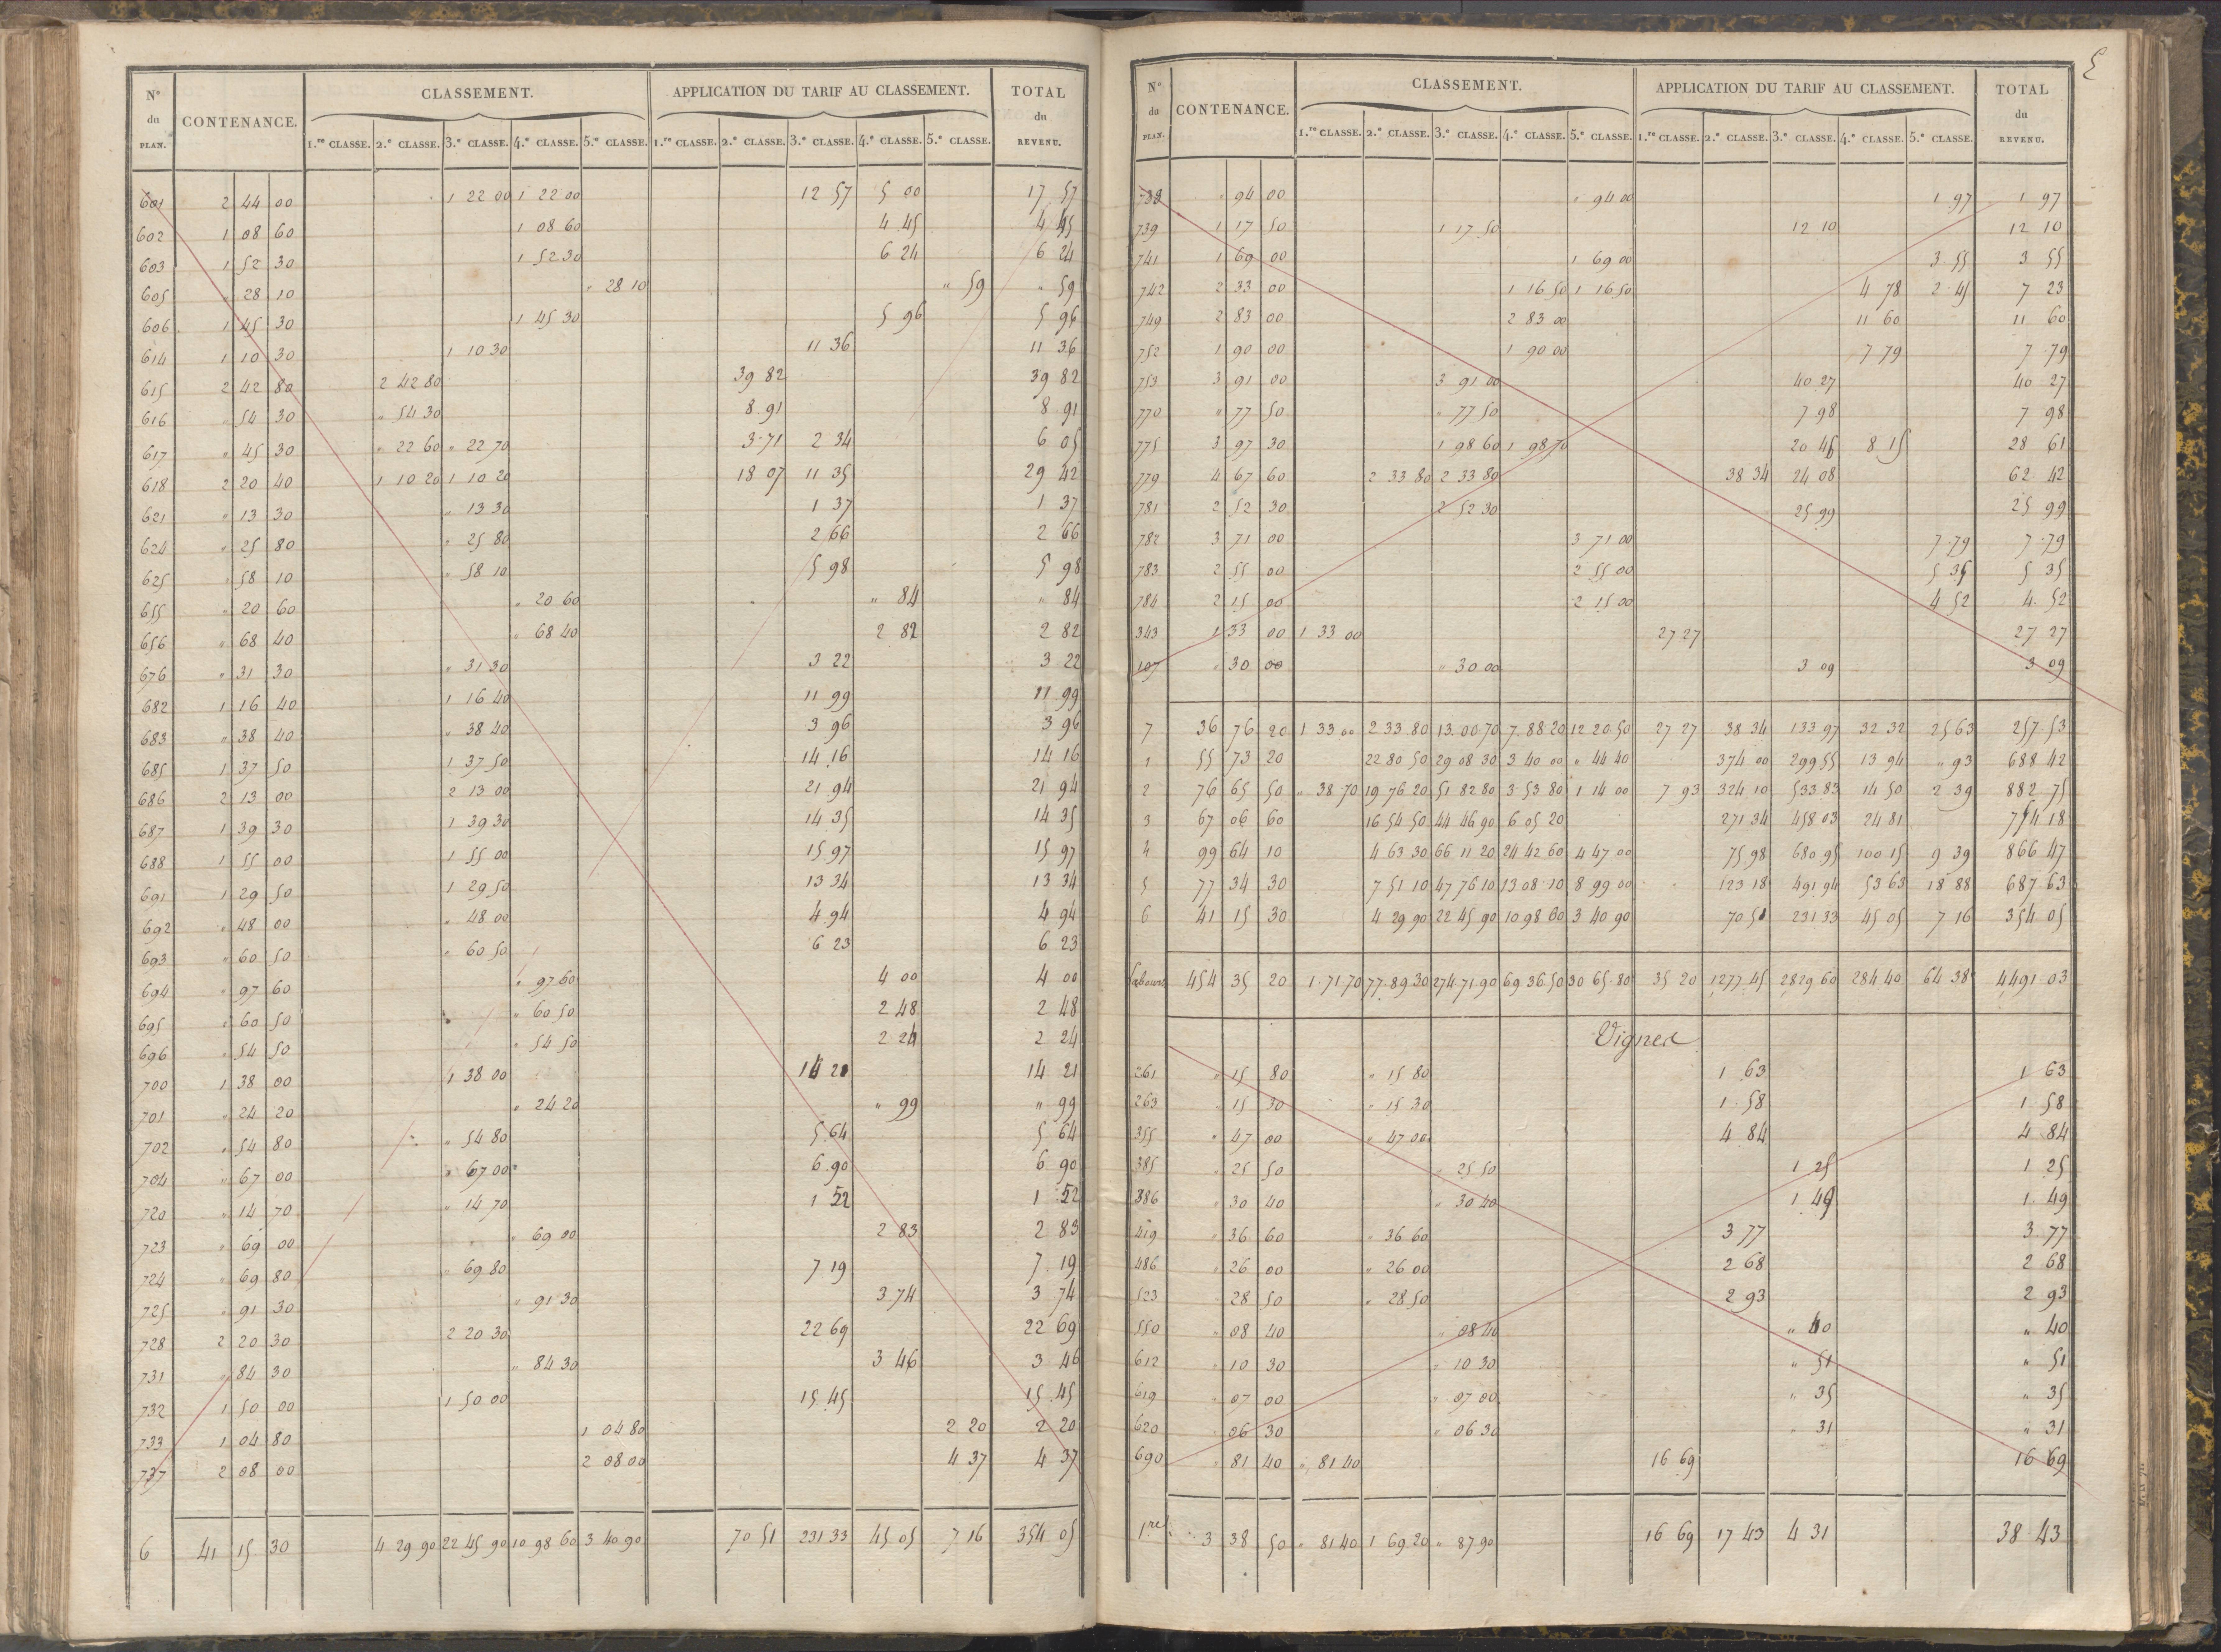 N° du PLAN. CONTENANCE. CLASSEMENT. APPLICATION DU TARIF AU CLASSEMENT. TOTAL du REVENU.
1.re CLASSE. 2.e CLASSE. 3.e CLASSE. 4.e CLASSE. 5.e CLASSE. 1.re CLASSE. 2.e CLASSE. 3.e CLASSE. 4.e CLASSE. 5.e CLASSE.
601 2 44 00 1 22 00 1 22 00 12 57 5 00 17 57
602 1 08 60 1 08 60 4 45 4 45
603 1 52 30 1 52 30 6 24 6 24
605 " 28 10 " 28 10 " 59 " 59
606 1 45 30 1 45 30 5 96 5 96
614 1 10 30 1 10 30 11 36 11 36
615 2 42 80 2 42 80 39 82 39 82
616 " 54 30 " 54 30 8 91 8 91
617 " 45 30 " 22 60 " 22 70 3 71 2 34 6 05
618 2 20 40 1 10 20 1 10 20 18 07 11 35 29 42
621 " 13 30 " 13 30 1 37 1 37
624 " 25 80 " 25 80 2 66 2 66
625 " 58 10 " 58 10 5 98 5 98
655 " 20 60 " 20 60 " 84 " 84
656 " 68 40 " 68 40 2 82 2 82
676 " 31 30 " 31 30 3 22 3 22
682 1 16 40 1 16 40 11 99 11 99
683 " 38 40 " 38 40 3 96 3 96
685 1 37 50 1 37 50 14 16 14 16
686 2 13 00 2 13 00 21 94 21 94
687 1 39 30 1 39 30 14 35 14 35
688 1 55 00 1 55 00 15 97 15 97
691 1 29 50 1 29 50 13 34 13 34
692 " 48 00 " 48 00 4 94 4 94
693 " 60 50 " 60 50 6 23 6 23
694 " 97 60 " 97 60 4 00 4 00
695 " 60 50 " 60 50 2 48 2 48
696 " 54 50 " 54 50 2 24 2 24
700 1 38 00 1 38 00 14 21 14 21
701 " 24 20 " 24 20 " 99 " 99
702 " 54 80 " 54 80 5 64 5 64
704 " 67 00 " 67 00 6 90 6 90
720 " 14 70 " 14 70 1 52 1 52
723 " 69 00 " 69 00 2 83 2 83
724 " 69 80 " 69 80 7 19 7 19
725 " 91 30 " 91 30 3 74 3 74
728 2 20 30 2 20 30 22 69 22 69
731 " 84 30 " 84 30 3 46 3 46
732 1 50 00 1 50 00 15 45 15 45
733 1 04 80 1 04 80 2 20 2 20
737 2 08 00 2 08 00 4 37 4 37
6 41 15 30 4 29 90 22 45 90 10 98 60 3 40 90 70 51 231 33 45 05 7 16 354 05
N° du PLAN. CONTENANCE. CLASSEMENT. APPLICATION DU TARIF AU CLASSEMENT. TOTAL du REVENU.
1.re CLASSE. 2.e CLASSE. 3.e CLASSE. 4.e CLASSE. 5.e CLASSE. 1.re CLASSE. 2.e CLASSE. 3.e CLASSE. 4.e CLASSE. 5.e CLASSE.
738 " 94 00 " 94 00 1 97 1 97
739 1 17 50 1 17 50 12 10 12 10
741 1 69 00 1 69 00 3 55 3 55
742 2 33 00 1 16 50 1 16 50 4 78 2 45 7 23
749 2 83 00 2 83 00 11 60 11 60
752 1 90 00 1 90 00 7 79 7 79
753 3 91 00 3 91 00 40 27 40 27
770 " 77 50 " 77 50 7 98 7 98
775 3 97 30 1 98 60 1 98 70 20 46 8 15 28 61
779 4 67 60 2 33 80 2 33 80 38 34 24 08 62 42
781 2 52 30 2 52 30 25 99 25 99
782 3 71 00 3 71 00 7 79 7 79
783 2 55 00 2 55 00 5 35 5 35
784 2 15 00 2 15 00 4 52 4 52
343 1 33 00 1 33 00 27 27 27 27
107 " 30 00 " 30 00 3 09 3 09
7 36 76 20 1 33 00 2 33 80 13 00 70 7 88 20 12 20 50 27 27 38 34 133 97 32 32 25 63 257 53
1 55 73 20 22 80 50 29 08 30 3 40 00 " 44 40 374 00 299 55 13 94 " 93 688 42
2 76 65 50 " 38 70 19 76 20 51 82 80 3 53 80 1 14 00 7 93 324 10 533 83 14 50 2 39 882 75
3 67 06 60 16 54 50 44 46 90 6 05 20 271 34 458 03 24 81 754 18
4 99 64 10 4 63 30 66 11 20 24 42 60 4 47 00 75 98 680 95 100 15 9 39 866 47
5 77 34 30 7 51 10 47 76 10 13 08 10 8 99 00 123 18 491 94 53 63 18 88 687 63
6 41 15 30 4 29 90 22 45 90 10 98 60 3 40 90 70 51 231 33 45 05 7 16 354 05
Labours 454 35 20 1 71 70 77 89 30 274 71 90 69 36 50 30 65 80 35 20 1277 45 2829 60 284 40 64 38 4491 03
Vignes
261 " 15 80 " 15 80 1 63 1 63
263 " 15 30 " 15 30 1 58 1 58
355 " 47 00 " 47 00 4 84 4 84
385 " 25 50 " 25 50 1 25 1 25
386 " 30 40 " 30 40 1 49 1 49
419 " 36 60 " 36 60 3 77 3 77
486 " 26 00 " 26 00 2 68 2 68
523 " 28 50 " 28 50 2 93 2 93
550 " 08 40 " 08 40 " 40 " 40
612 " 10 30 " 10 30 " 51 " 51
619 " 07 00 " 07 00 " 35 " 35
620 " 06 30 " 06 30 " 31 " 31
690 " 81 40 " 81 40 16 69 16 69
1re 3 38 50 " 81 40 1 69 20 " 87 90 16 69 17 43 4 31 38 43